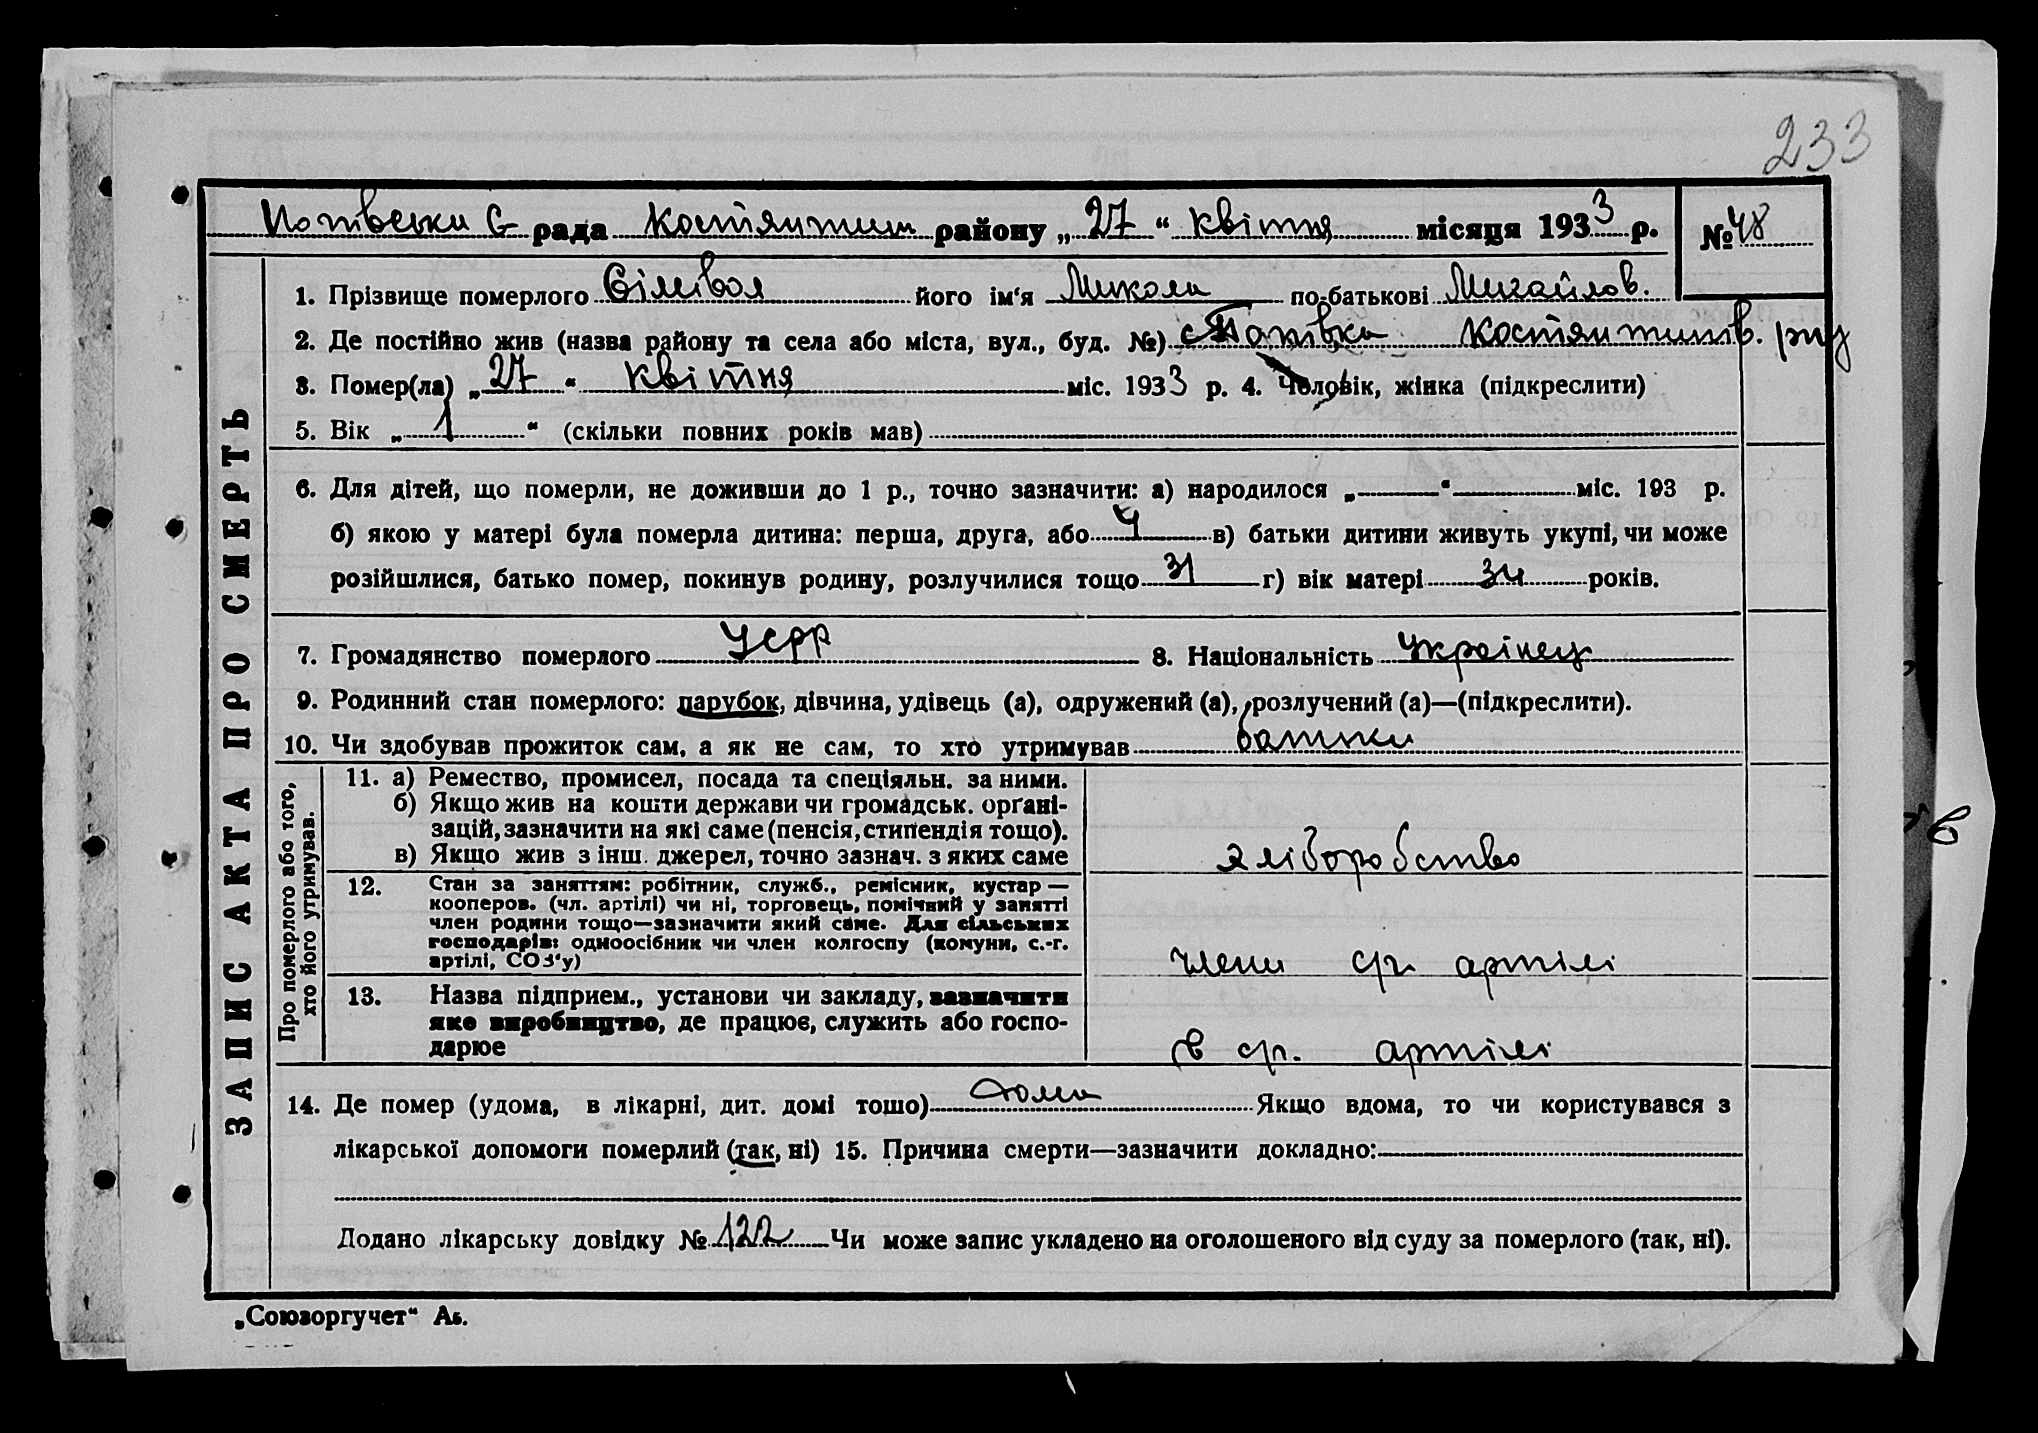 233
Попівська С рада Костянтин району „27“ квітня місяця 1933 р. № 48
1. Прізвище померлого його ім‘я Микола по-батькові Михайлов.
2. Де постійно жив (назва району та села або міста, вул., буд. №) с Попівка Костянтинів. р-ну
3. Помер(ла) „27“ квітня міс. 1933 р. 4. Чоловік, жінка (підкреслити)
5. Вік „1“ (скільки повних років мав)
6. Для дітей, що померли, не доживши до 1 р., точно зазначити: а) народилося „ “ міс. 193 р.
б) якою у матері була померла дитина: перша, друга, або 4 в) батьки дитини живуть укупі, чи може
розійшлися, батько помер, покинув родину, розлучилися тощо 31 г) вік матері років.
7. Громадянство померлого УСРР 8. Національність Українец
9. Родинний стан померлого: парубок, дівчина, удівець (а), одружений (а), розлучений (а)—(підкреслити).
10. Чи здобував прожиток сам, а як не сам, то хто утримував батьки
ЗАПИС АКТА ПРО СМЕРТЬ
Про померлого або того,
хто його утримував.
11. а) Ремество, промисел, посада та спеціяльн. за ними.
б) Якщо жив на кошти держави чи громадськ. орґані-
зацій, зазначити на які саме (пенсія, стипендія тощо).
в) Якщо жив з інш. джерел, точно зазнач. з яких саме
хліборобство
12. Стан за заняттям: робітник, служб., ремісник, кустар —
кооперов. (чл. артілі) чи ні, торговець, помічний у занятті
член родини тощо—зазначити який саме. Для сільських
господарів: одноосібник чи член колгоспу (комуни, с.-г.
артілі, СОЗ‘у)
члени с/г артілі
13. Назва підприєм., установи чи закладу, зазначити
яке виробництво, де працює, служить або госпо-
дарює
в с/г. артілі
14. Де помер (удома, в лікарні, дит. домі тощо) дома Якщо вдома, то чи користувався з
лікарської допомоги померлий (так, ні) 15. Причина смерти—зазначити докладно:
Додано лікарську довідку № 122 Чи може запис укладено на оголошеного від суду за померлого (так, ні).
„Союзоргучет“